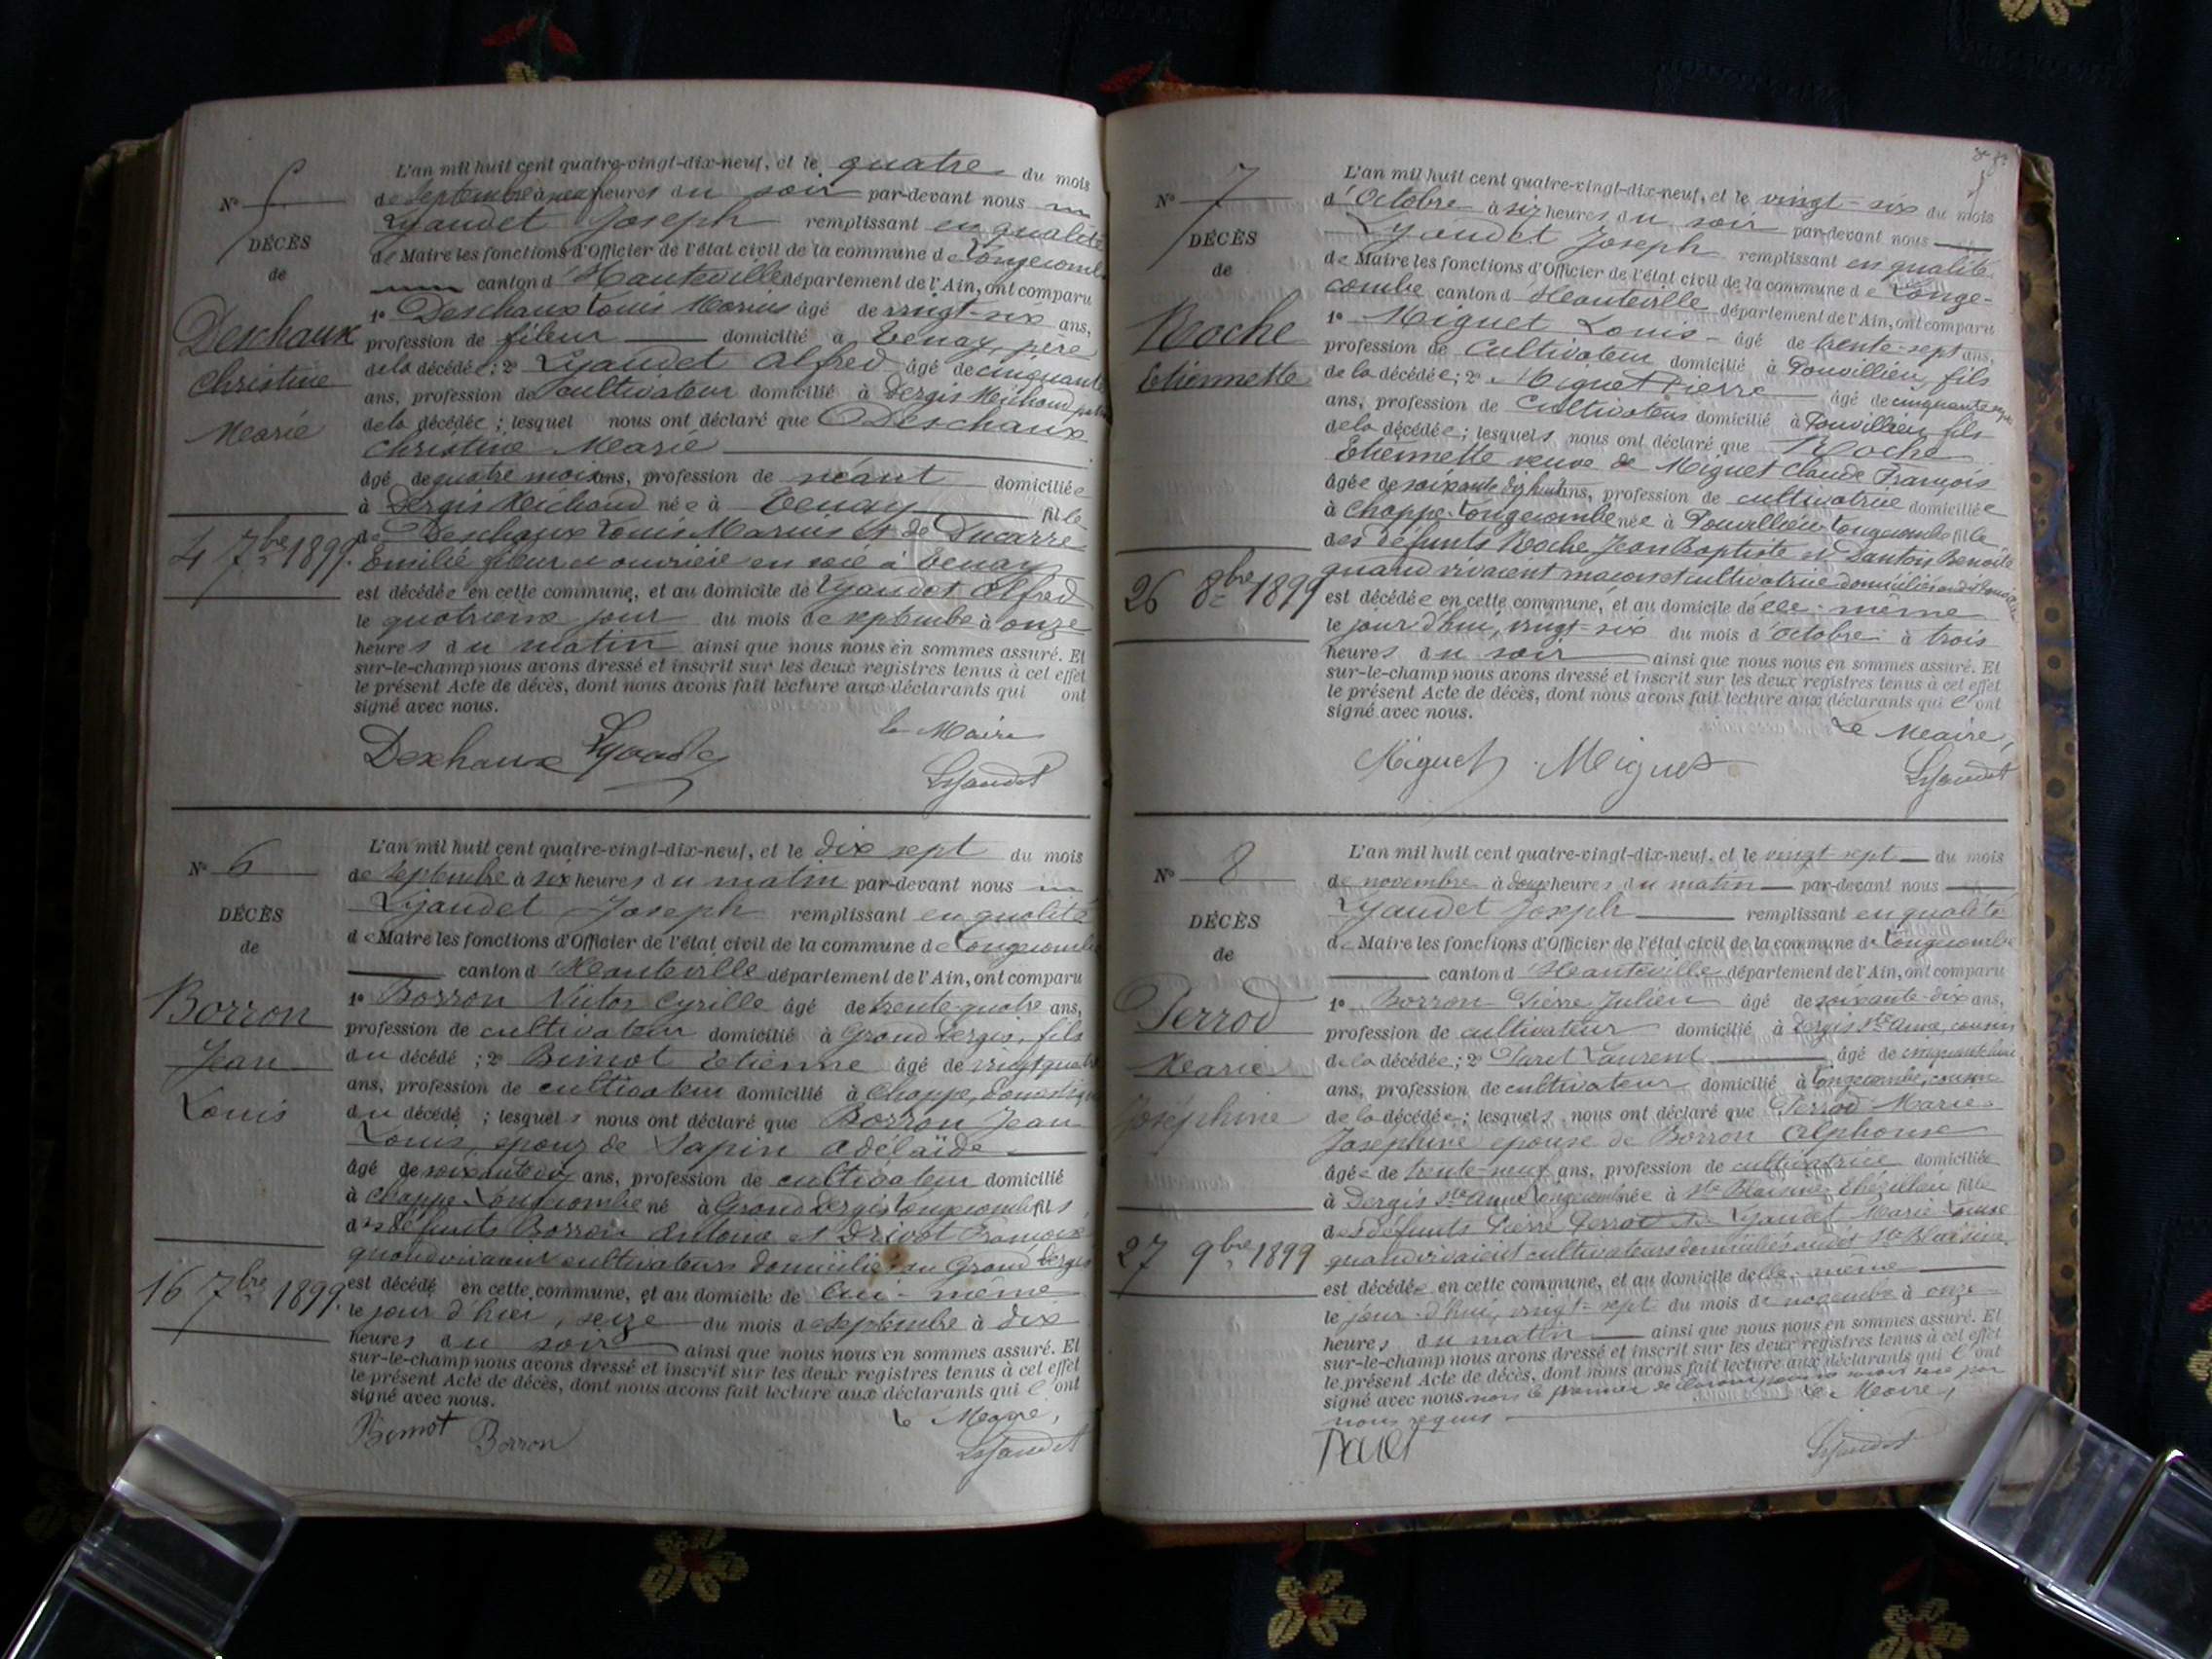 N° 5
DÉCÈS
de
Deschaux
Christine
Marie
4 7bre 1899.
L'an mil huit cent quatre-vingt-dix-neuf, et le quatre du mois
de Septembre à neuf heures du soir par-devant nous
Lyaudet Joseph remplissant en qualité
de Maire les fonctions d'Officier de l'état civil de la commune de Longecombe
canton d'Hauteville département de l'Ain, ont comparu
1° Deschaux Louis Marius âgé de vingt-six ans,
profession de fileur domicilié à Tenay, père
de la décédée ; 2° Lyaudet Alfred âgé de cinquante
ans, profession de cultivateur domicilié à Dergis Michaud
de la décédée ; lesquel nous ont déclaré que Deschaux
Christine Marie
âgé de quatre mois ans, profession de néant domiciliée
à Dergis Michaud née à Tenay fille
de Deschaux Louis Marius et de Ducarre
Emilie fileur et ouvrière en soie à Tenay
est décédée en cette commune, et au domicile de Lyaudet Alfred
le quatrième jour du mois de septembre à onze
heures du matin ainsi que nous nous en sommes assuré. Et
sur-le-champ nous avons dressé et inscrit sur les deux registres tenus à cet effet
le présent Acte de décès, dont nous avons fait lecture aux déclarants qui ont
signé avec nous.
le Maire
Deschaux Lyaudet Lyaudet
N° 6
DÉCÈS
de
Borron
Jean
Louis
16 7bre 1899.
L'an mil huit cent quatre-vingt-dix-neuf, et le dix sept du mois
de Septembre à six heures du matin par-devant nous
Lyaudet Joseph remplissant en qualité
de Maire les fonctions d'Officier de l'état civil de la commune de Longecombe
canton d'Hauteville département de l'Ain, ont comparu
1° Borron Victor Cyrille âgé de trente-quatre ans,
profession de cultivateur domicilié à Grand Dergis, fils
du décédé ; 2° Bimot Etienne âgé de vingt quatre
ans, profession de cultivateur domicilié à Chappe, domestique
du décédé ; lesquels nous ont déclaré que Borron Jean
Louis, epoux de Sapin Adélaïde
âgé de ans, profession de cultivateur domicilié
à Chappe Longecombe né à Grand Dergis Longecombe fils
des défunts Borron Antoine et Drivot Françoise
quand vivaient cultivateurs domiciliés au Grand Dergis
est décédé en cette commune, et au domicile de lui-même
le jour d'hier, seize du mois de septembre à dix
heures du soir ainsi que nous nous en sommes assuré. Et
sur-le-champ nous avons dressé et inscrit sur les deux registres tenus à cet effet
le présent Acte de décès, dont nous avons fait lecture aux déclarants qui l'ont
signé avec nous.
le Maire,
Bimot Borron Lyaudet
N° 7
DÉCÈS
de
Roche
Etiennette
26 8bre 1899
L'an mil huit cent quatre-vingt-dix-neuf, et le vingt-six du mois
d'Octobre à six heures du soir par-devant nous
Lyaudet Joseph remplissant en qualité
de Maire les fonctions d'Officier de l'état civil de la commune de Longe-
combe canton d'Hauteville département de l'Ain, ont comparu
1° Miguet Louis âgé de trente-sept ans,
profession de Cultivateur domicilié à Pouvillieu, fils
de la décédée ; 2° Miguet Pierre âgé de cinquante
ans, profession de Cultivateur domicilié à Pouvillieu fils
de la décédée ; lesquels nous ont déclaré que Roche
Etiennette veuve de Miguet Claude François
âgée de soixante dix huit ans, profession de cultivatrice domiciliée
à Chappe-Longecombe née à Pouvillieu Longecombe fille
des défunts Roche Jean Baptiste et Dantoin Benoite
quand vivaient maçon et cultivatrice domiciliés
est décédée en cette commune, et au domicile de elle-même
le jour d'hui, vingt-six du mois d'octobre à trois
heures du soir ainsi que nous nous en sommes assuré. Et
sur-le-champ nous avons dressé et inscrit sur les deux registres tenus à cet effet
le présent Acte de décès, dont nous avons fait lecture aux déclarants qui l'ont
signé avec nous.
Le Maire,
Miguet Miguet Lyaudet
N° 8
DÉCÈS
de
Perrod
Marie
Joséphine
27 9bre 1899
L'an mil huit cent quatre-vingt-dix-neuf, et le vingt-sept du mois
de novembre à heures du matin par-devant nous
Lyaudet Joseph remplissant en qualité
de Maire les fonctions d'Officier de l'état civil de la commune de Longecombe
canton d'Hauteville département de l'Ain, ont comparu
1° Borron Pierre Julien âgé de soixante-dix ans,
profession de cultivateur domicilié à Dergis Ste Anne, cousin
de la décédée ; 2° Paret Laurent âgé de
ans, profession de cultivateur domicilié à Longecombe, cousin
de la décédée ; lesquels nous ont déclaré que Perrod Marie
Josephine epouse de Borron Alphonse
âgée de trente-neuf ans, profession de cultivatrice domiciliée
à Dergis Ste Anne Longecombe née à Ste Blaisine Chézillieu fille
des défunts Pierre Perrod et Lyaudet Marie Louise
quand vivaient cultivateurs domiciliés audit Ste Blaisine
est décédée en cette commune, et au domicile d'elle-même
le jour d'hui, vingt-sept du mois de novembre à onze
heures du matin ainsi que nous nous en sommes assuré. Et
sur-le-champ nous avons dressé et inscrit sur les deux registres tenus à cet effet
le présent Acte de décès, dont nous avons fait lecture aux déclarants qui l'ont
signé avec nous non le premier
nous requis
Le Maire,
Paret Lyaudet